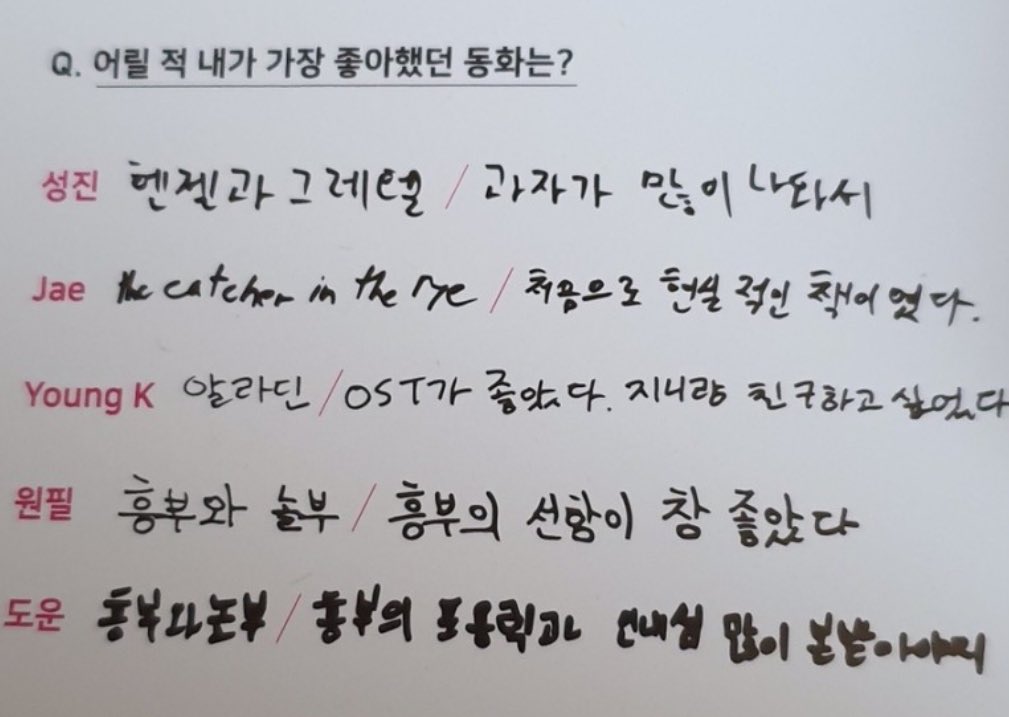 Q. 어릴 적 내가 가장 좋아했던 동화는?
성진 헨젤과 그레텔 / 과자가 많이 나와서
Jae the catcher in the rye / 처음으로 현실적인 책이었다.
Young K 알라딘 / OST가 좋았다. 지니랑 친구하고 싶었다
원필 흥부와 놀부 / 흥부의 선함이 참 좋았다
도운 흥부와 논부 / 흥부의 포용력과 인내심 많이 본받아야지